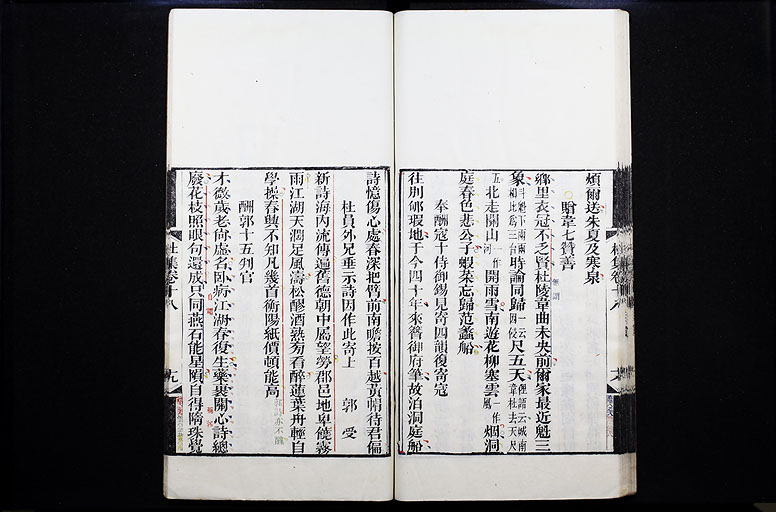 煩爾送朱夏及寒泉
贈韋七贊善
鄉里衣冠不乏賢杜陵韋曲未央前爾家最近魁三
象時論同歸尺五天
北走關山開雨雪南遊花柳塞雲烟洞
庭春色悲公子蝦菜忘歸范蠡船
奉酬寇十侍御錫見寄四韻復寄寇
往別郇瑕地于今四十年來簪御府筆故泊洞庭船
詩憶傷心處春深把臂前南瞻按百越黃帽待君偏
杜員外兄垂示詩因作此寄上 郭受
新詩海內流傳遍舊德朝中屬望勞郡邑地卑饒霧
雨江湖天濶足風濤松醪酒熟旁看醉蓮葉舟輕自
學操春興不知凡幾首衡陽紙價頓能高
酬郭十五判官
才微歲老尙虛名臥病江湖春復生藥裹關心詩總
廢花枝照眼句還成只同燕石能星隕自得隋珠覺
杜集卷十八
九